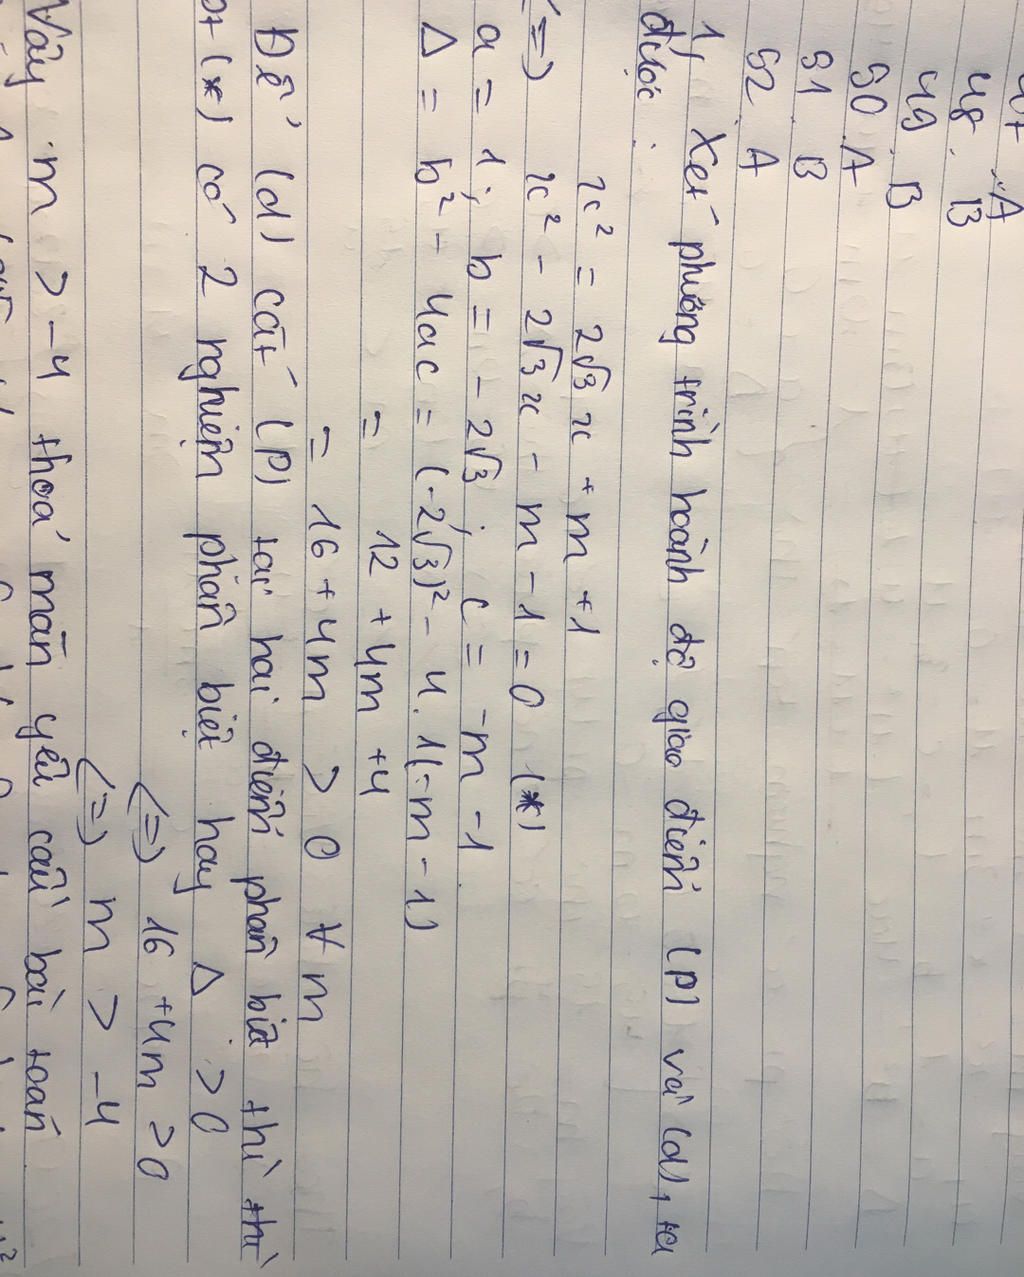 48. B
49. B
50. A
51. B
52. A
1, Xét phương trình hoành độ giao điểm (P) và (d), ta
được :
x² = 2√3 x + m + 1
(=) x² - 2√3 x - m - 1 = 0 (*)
a = 1; b = - 2√3; c = -m - 1
Δ = b² - 4ac = (-2√3)² - 4. 1(-m - 1)
= 12 + 4m + 4
= 16 + 4m > 0 ∀ m
Để (d) cắt (P) tại hai điểm phân biệt thì thì
pt (*) có 2 nghiệm phân biệt hay Δ > 0
(=) 16 + 4m > 0
(=) m > -4
Vậy m > -4 thoả mãn yêu cầu bài toán